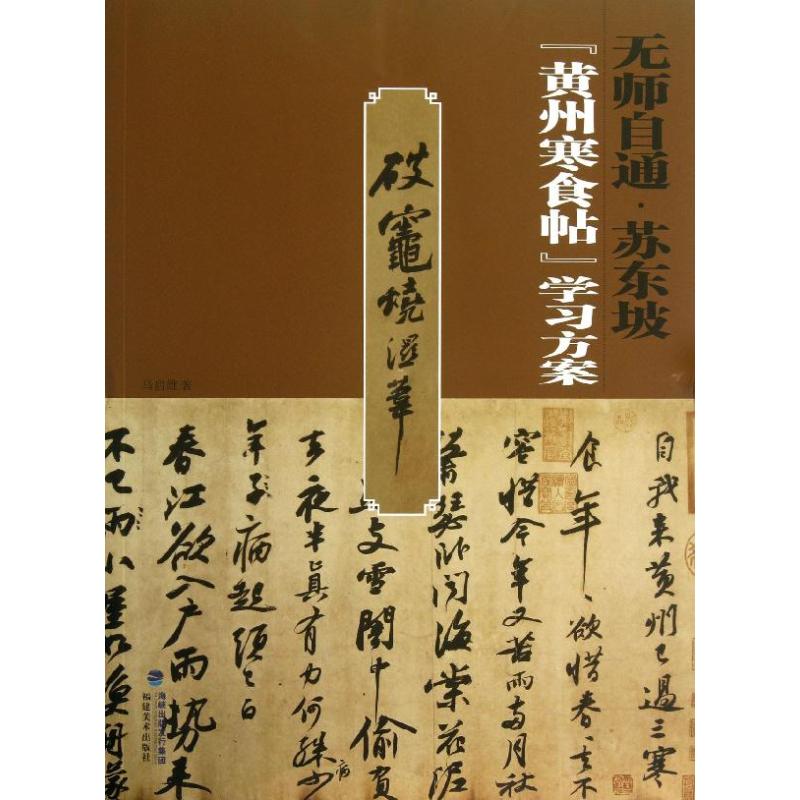 无师自通·苏东坡
『黄州寒食帖』学习方案
破竈燒湿葦
马启雄 著
自我来黄州已過三寒
食年々欲惜春々去不
容惜今年又苦雨兩月秋
蕭瑟卧聞海棠花泥
支雪闇中偷負
去夜半真有力何殊少
病
年子病起須已白
春江欲入户雨势来
不已雨小屋如漁舟濛
海峡出版发行集团
福建美术出版社